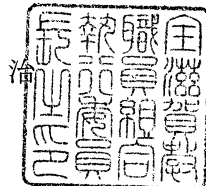 全滋賀教
職員組合
執行委員
長之印
治